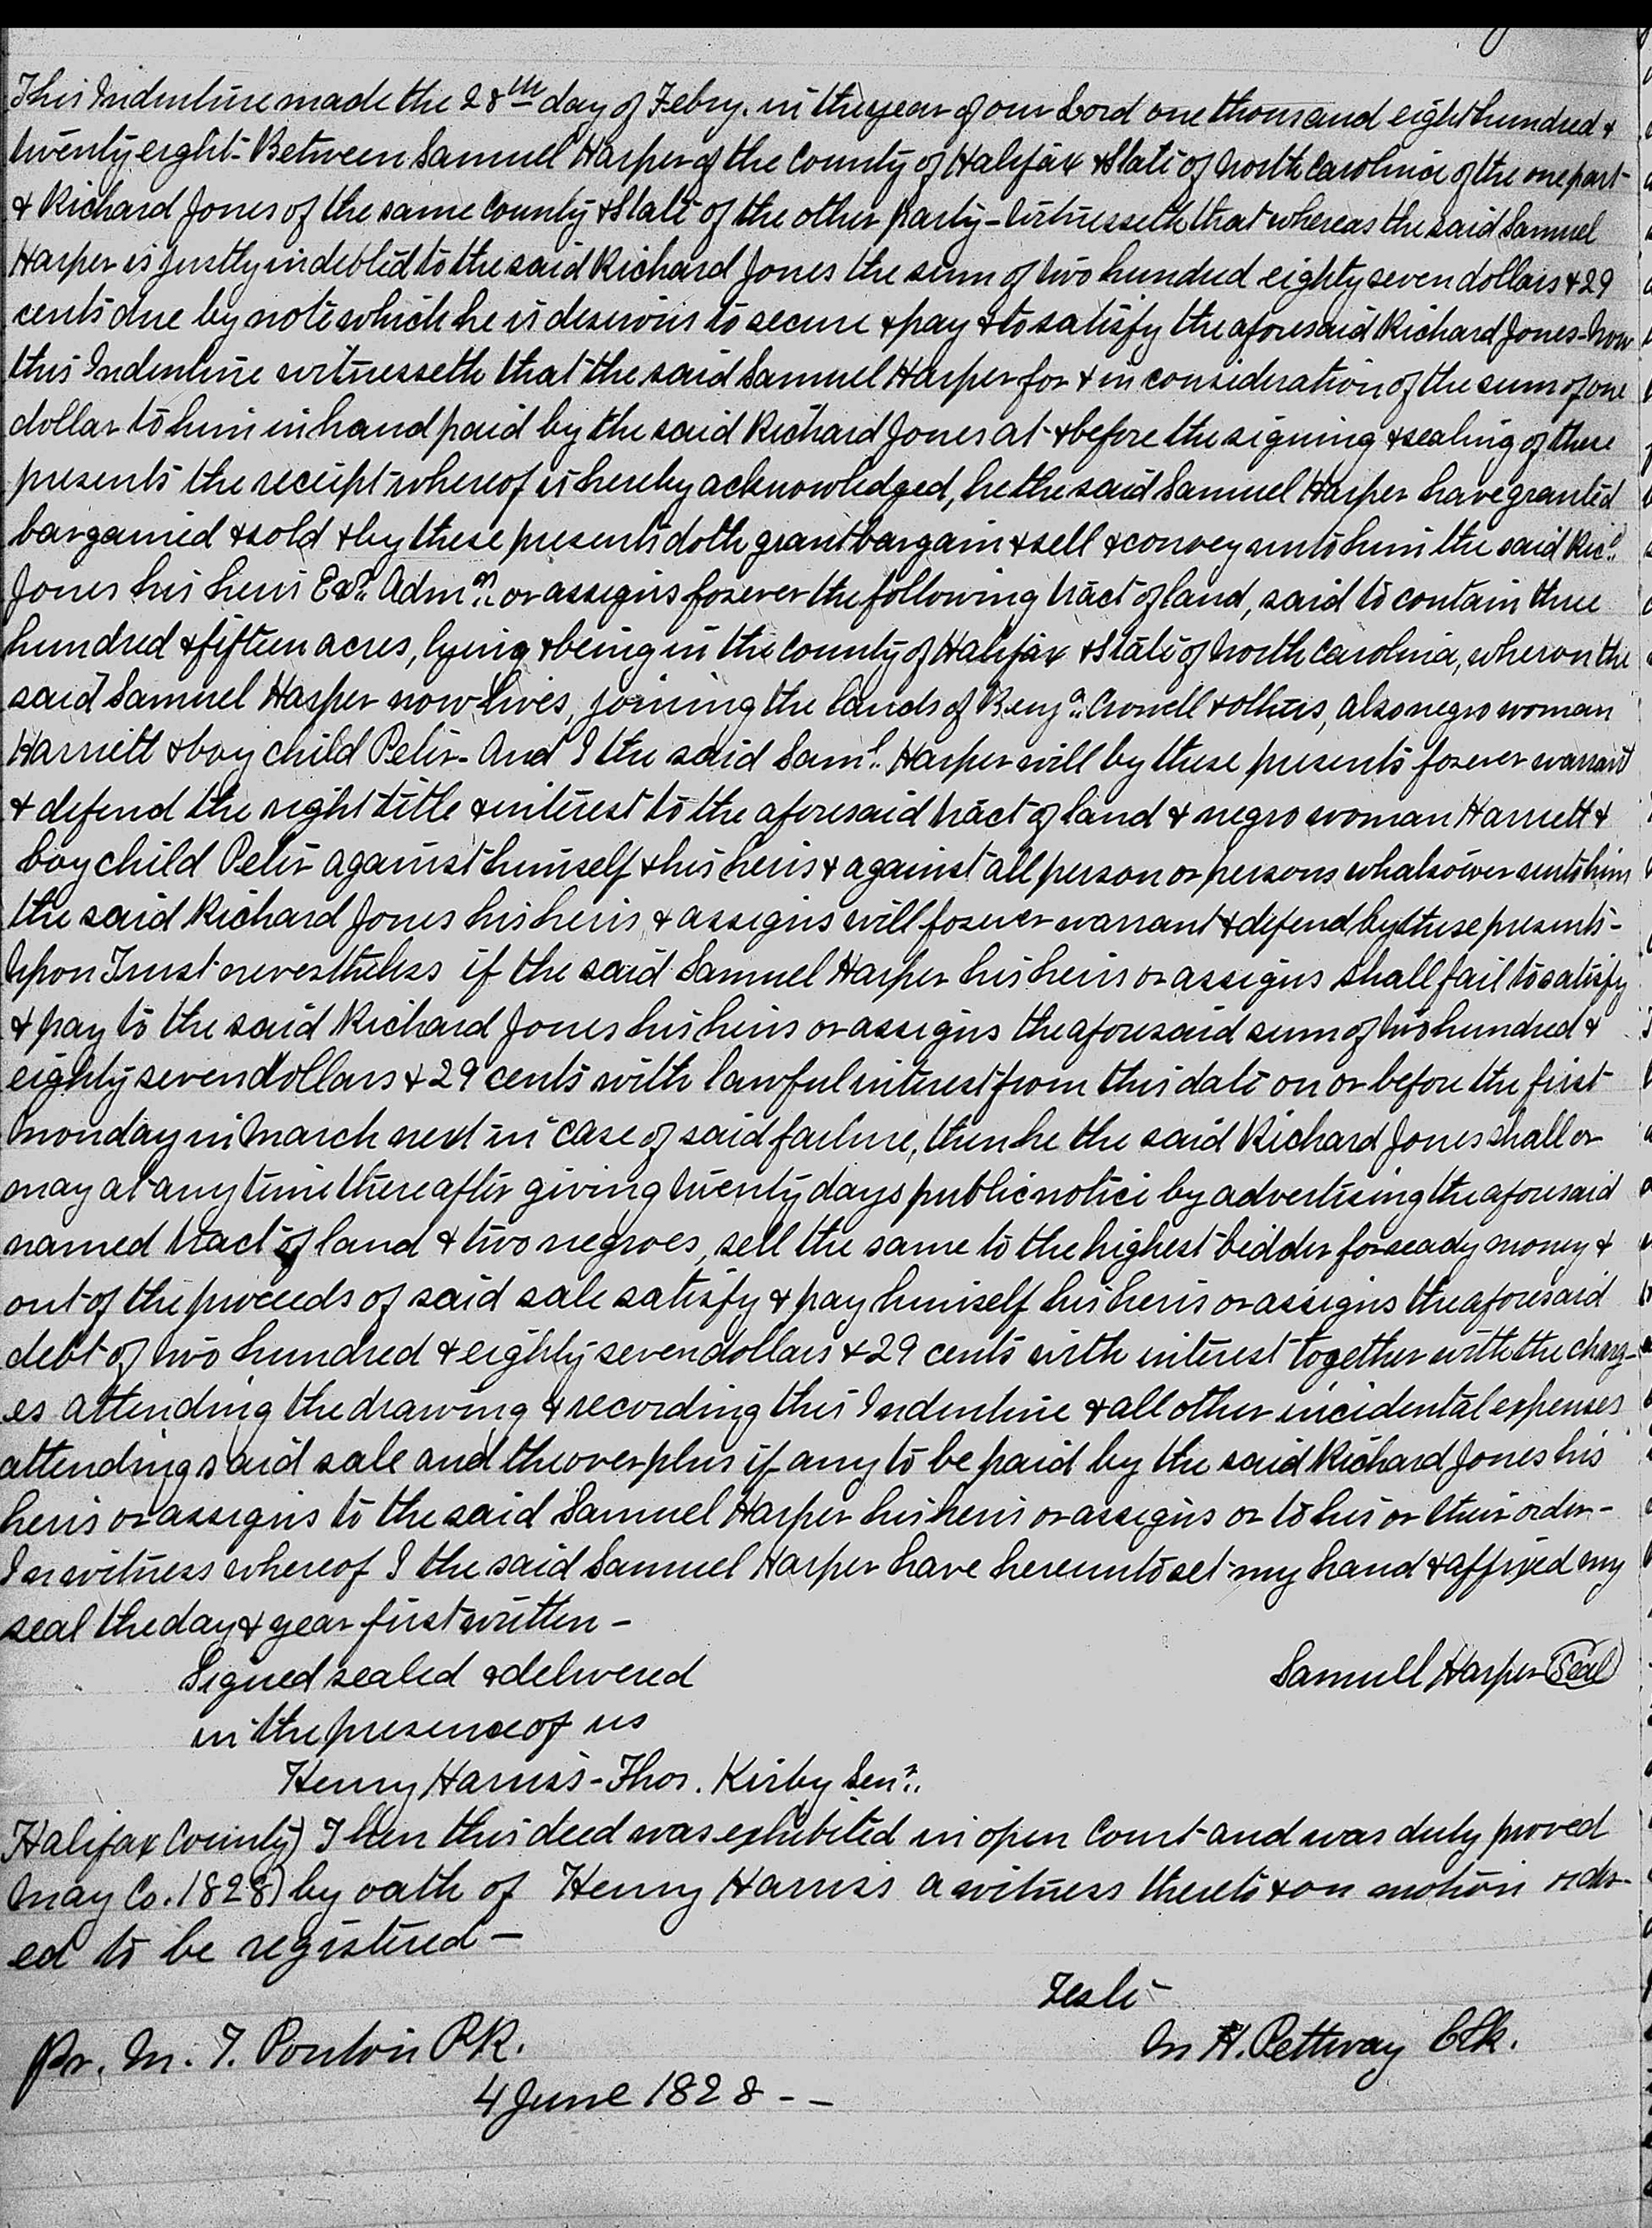 This Indenture made the 28th day of Febry. in the year of our Lord one thousand eight hundred &
twenty eight - Between Samuel Harper of the County of Halifax & State of North Carolina of the one part
& Richard Jones of the same County & State of the other party - Witnesseth that whereas the said Samuel
Harper is justly indebted to the said Richard Jones the sum of two hundred eighty seven dollars & 29
cents due by note which he is desirous to secure & pay & to satisfy the aforesaid Richard Jones - Now
this Indenture witnesseth that the said Samuel Harper for & in consideration of the sum of one
dollar to him in hand paid by the said Richard Jones at & before the signing & sealing of these
presents the receipt whereof is hereby acknowledged, he the said Samuel Harper have granted
bargained & sold & by these presents doth grant bargain & sell & convey unto him the said Ricd.
Jones his heirs Exr. Admr. or assigns forever the following tract of land, said to contain three
hundred & fifteen acres, lying & being in the County of Halifax & State of North Carolina, wheron the
said Samuel Harper now lives, joining the lands of Benja. Crowell & others, also negro woman
Harriett & boy child Peter - And I the said Saml. Harper will by these presents forever warrant
& defend the right title & interest to the aforesaid tract of land & negro woman Harriett &
boy child Peter against himself & his heirs & against all person or persons whatsoever unto him
the said Richard Jones his heirs & assigns will forever warrant & defend by these presents -
Upon Trust nevertheless if the said Samuel Harper his heirs or assigns shall fail to satisfy
& pay to the said Richard Jones his heirs or assigns the aforesaid sum of two hundred &
eighty seven dollars & 29 cents with lawful interest from this date on or before the first
Monday in March next in case of said failure, then he the said Richard Jones shall or
may at any time thereafter giving twenty days public notice by advertising the aforesaid
named tract of land & two negroes, sell the same to the highest bidder for ready money &
out of the proceeds of said sale satisfy & pay himself his heirs or assigns the aforesaid
debt of two hundred & eighty seven dollars & 29 cents with interest together with the charg-
es attending the drawing & recording this Indenture & all other incidental expenses
attending said sale and the overplus if any to be paid by the said Richard Jones his
heirs or assigns to the said Samuel Harper his heirs or assigns or to his or their order -
In witness whereof I the said Samuel Harper have hereunto set my hand & affixed my
seal the day & year first written -
Signed sealed & delivered
Samuel Harper (Seal)
in the presence of us
Henry Harriss - Thos. Kirby Senr.
Halifax County) Then this deed was exhibited in open Court and was duly proved
May Co. 1828) by oath of Henry Harriss a witness thereto & on motion order-
ed to be registered -
Teste
Pr. M. T. Ponton P.R.
M H. Pettway Clk.
4 June 1828 - -